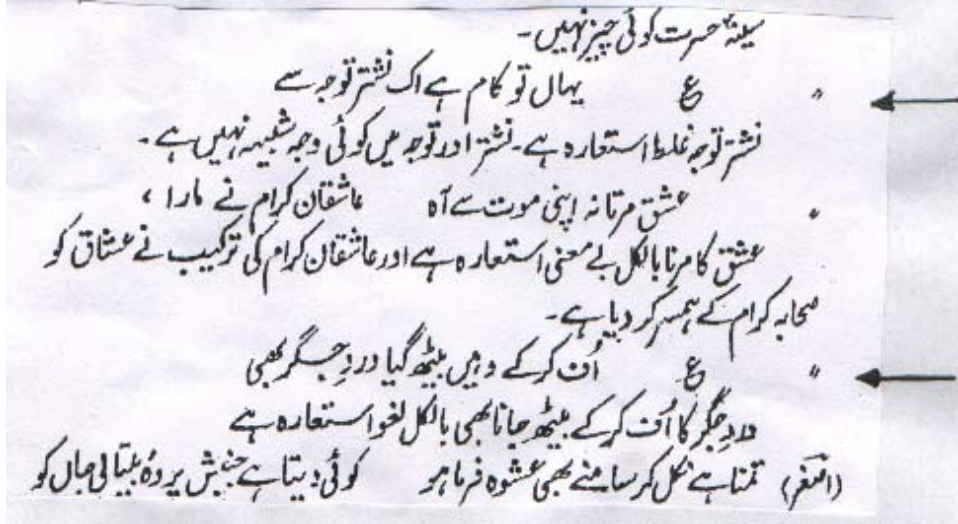 سینۂ حسرت کوئی چیز نہیں۔
〃 ع یہاں تو کام ہے اک نشتر توجہ سے
نشتر توجہ غلط استعارہ ہے۔ نشتر اور توجہ میں کوئی وجہ شبیہہ نہیں ہے۔
〃 عشق مرتا نہ اپنی موت سے آہ عاشقان کرام نے مارا،
عشق کا مرنا بالکل بے معنی استعارہ ہے اور عاشقان کرام کی ترکیب نے عشاق کو
صحابہ کرام کے ہمسر کر دیا ہے۔
〃 ع اُف کرکے وہیں بیٹھ گیا دردِ جگر بھی
دردِ جگر کا اُف کرکے بیٹھ جانا بھی بالکل لغو استعارہ ہے
(اصغر) تمنا ہے نکل کر سامنے بھی عشوہ فرما ہو کوئی دیتا ہے جنبش پردۂ بیتابیٔ جاں کو